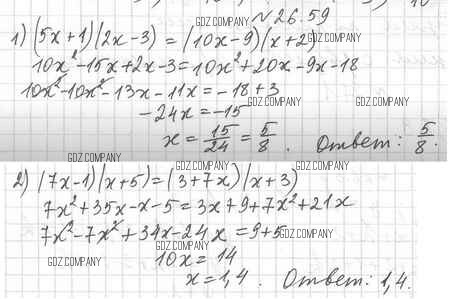 № 26.59
1) (5x+1)(2x-3) = (10x-9)(x+2)
10x²-15x+2x-3=10x²+20x-9x-18
10x²-10x²-13x-11x=-18+3
-24x=-15
x = 15/24 = 5/8. Ответ: 5/8.
2) (7x-1)(x+5)=(3+7x)(x+3)
7x²+35x-x-5=3x+9+7x²+21x
7x²-7x²+34x-24x=9+5
10x=14
x=1,4. Ответ: 1,4.
GDZ.COMPANY
GDZ.COMPANY
GDZ.COMPANY
GDZ.COMPANY
GDZ.COMPANY
GDZ.COMPANY
GDZ.COMPANY
GDZ.COMPANY
GDZ.COMPANY
GDZ.COMPANY
GDZ.COMPANY
GDZ.COMPANY